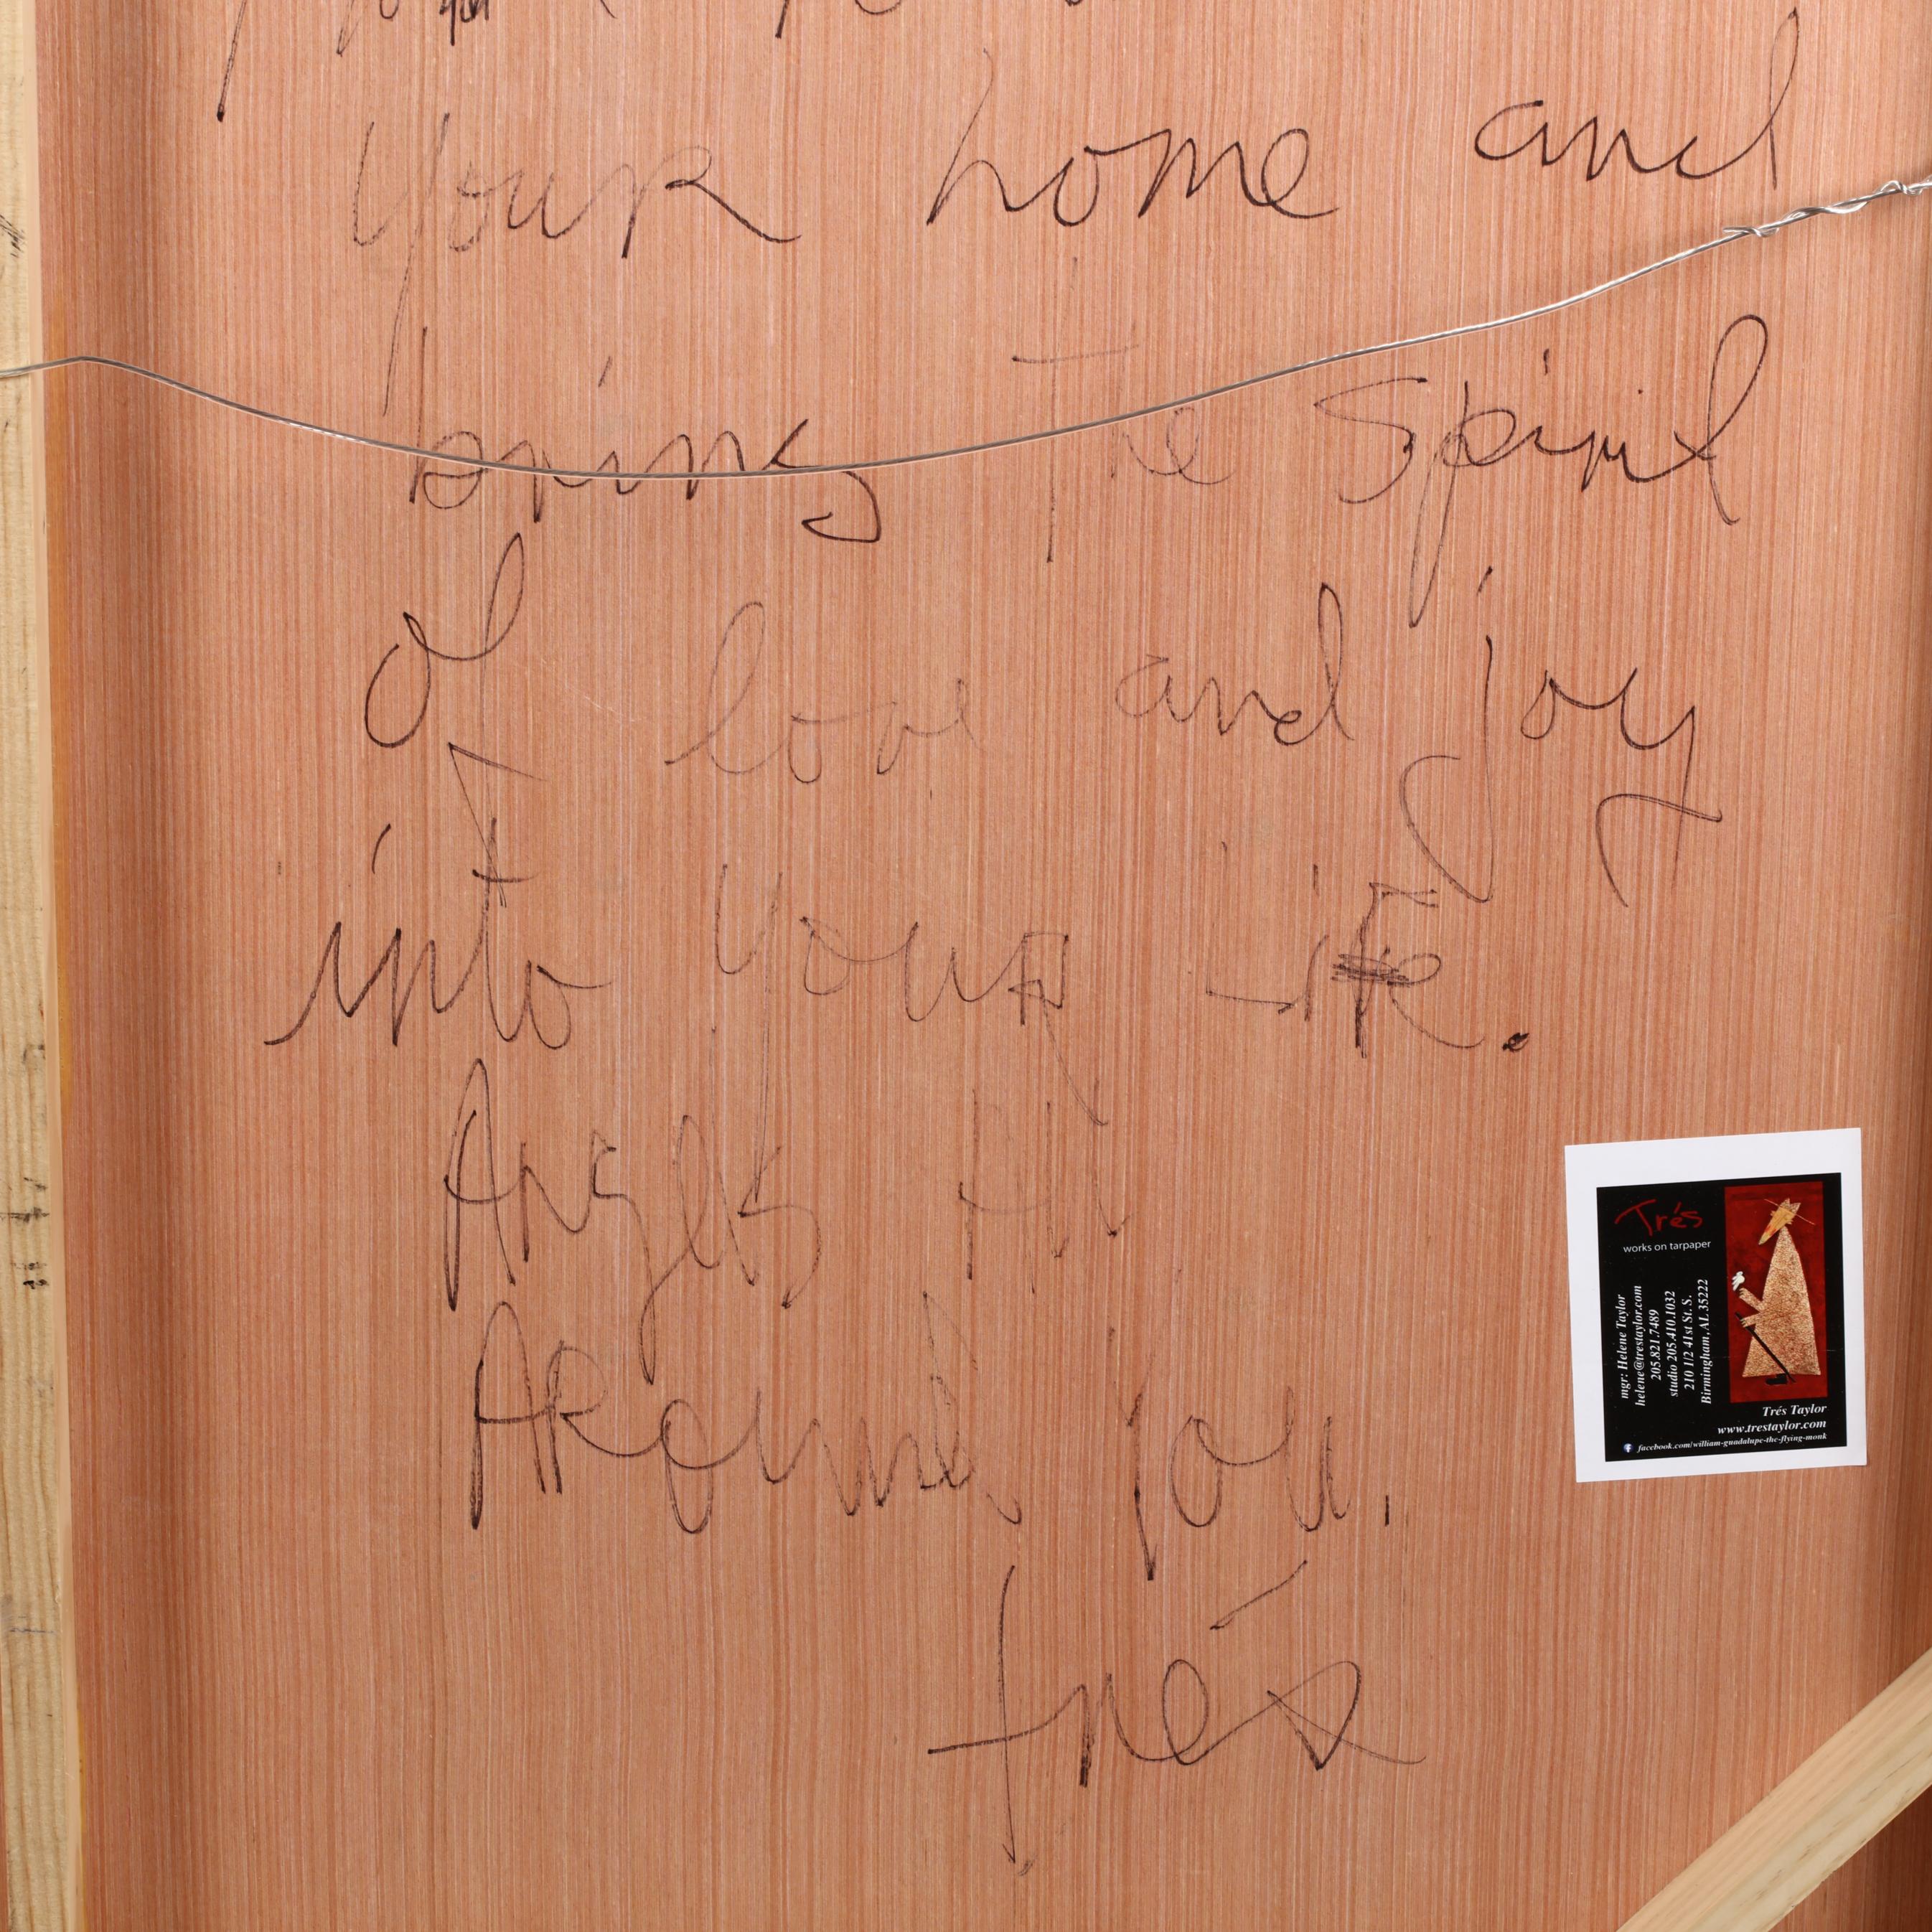 your home and
bring The spirit
of love and joy
into your life.
Angels All
Around you.
Trés
Trés
works on tarpaper
mgr: Helene Taylor
helene@trestaylor.com
205.821.7489
studio 205.410.1032
210 1/2 41st St. S.
Birmingham, AL 35222
Trés Taylor
www.trestaylor.com
facebook.com/william-guadalupe-the-flying-monk